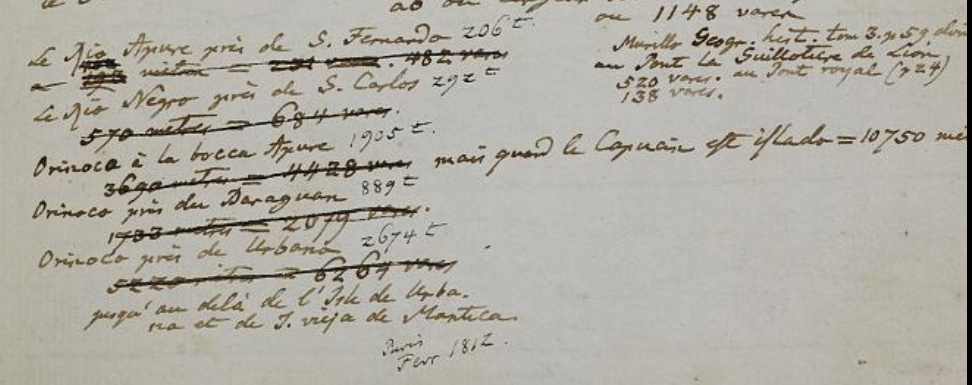 ou 1148 varen
Le Rio Apure près de S. Fernando 206 t.
metres = 482 vares
Le Rio Negro près de S. Carlos 292 t
570 metres = 684 vares.
Murillo Geogr. hist. tom 3. p 59
au Pont la Guillotiere de Lion
520 vares. au Pont royal (p 24)
138 vares.
Orinoco à la bocca Apure 1905 t.
3690 metres = 4428 vares mais quand le est islado = 10750
Orinoco près du Baraguan 889 t
1733 metres = 2079 vares.
Orinoco près de Urbana 2674 t
5220 metres = 6264 vares
jusqu'au delà de l'Isle de Urba.
na et de I. vieja de Manteca
Paris
Fevr 1812.